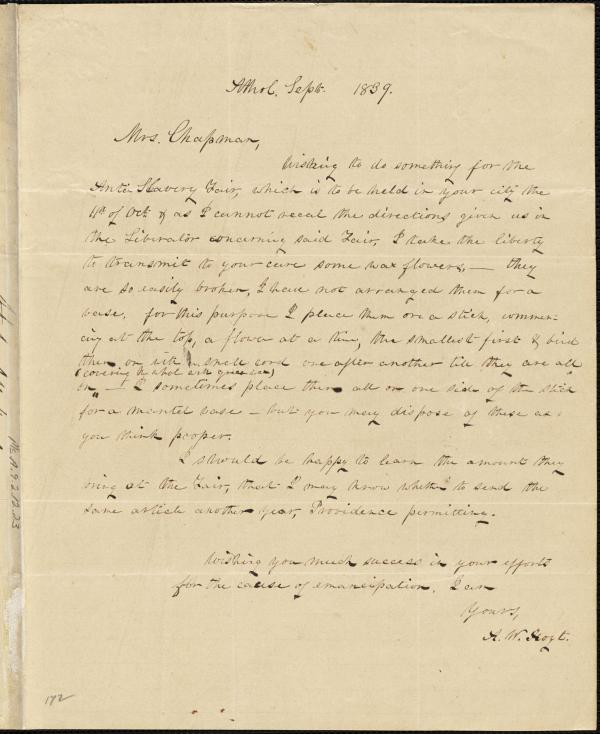 Athol, Sept. 1839.
Mrs. Chapman,
Wishing to do something for the
Anti Slavery Fair, which is to be held in your city the
of Oct. & as I cannot recal the directions given us in
the Liberator concerning said Fair, I take the liberty
to transmit to your care some wax flowers, — they
are so easily broken, I have not arranged them for a
vase. for this purpose I place them on a stick, commen-
cing at the top, a flower at a time, the smallest first & bind
them on with a small cord one after another till they are all
(covering the whole with green)
on — I sometimes place them all on one side of the stick
for a mantel vase — but you may dispose of these as
you think proper.
I should be happy to learn the amount they
bring at the Fair, that I may know whether to send the
same article another year, Providence permitting.
Wishing you much success in your efforts
for the cause of emancipation. I am
Yours,
A. W. Hoyt.
172